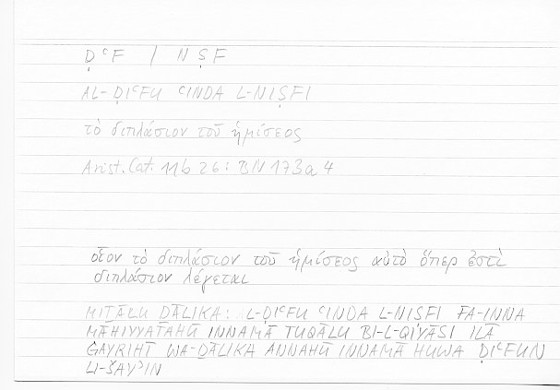 ḌʿF / NṢF
AL-ḌIʿFU ʿINDA L-NIṢFI
τὸ διπλάσιον τοῦ ἡμίσεος
Arist. Cat. 11b 26; BN 173a 4
οἷον τὸ διπλάσιον τοῦ ἡμίσεος αὐτὸ ὅπερ ἐστὶ
διπλάσιον λέγεται
MIṮĀLU ḎĀLIKA: L-ḌIʿFU ʿINDA L-NIṢFI FA-INNA
MĀHIYYATAHŪ INNAMĀ TUQĀLU BI-L-QIYĀSI ILĀ
ĠAYRIHĪ WA-ḎĀLIKA ANNAHŪ INNAMĀ HUWA ḌIʿFUN
LI-ŠAYʾIN